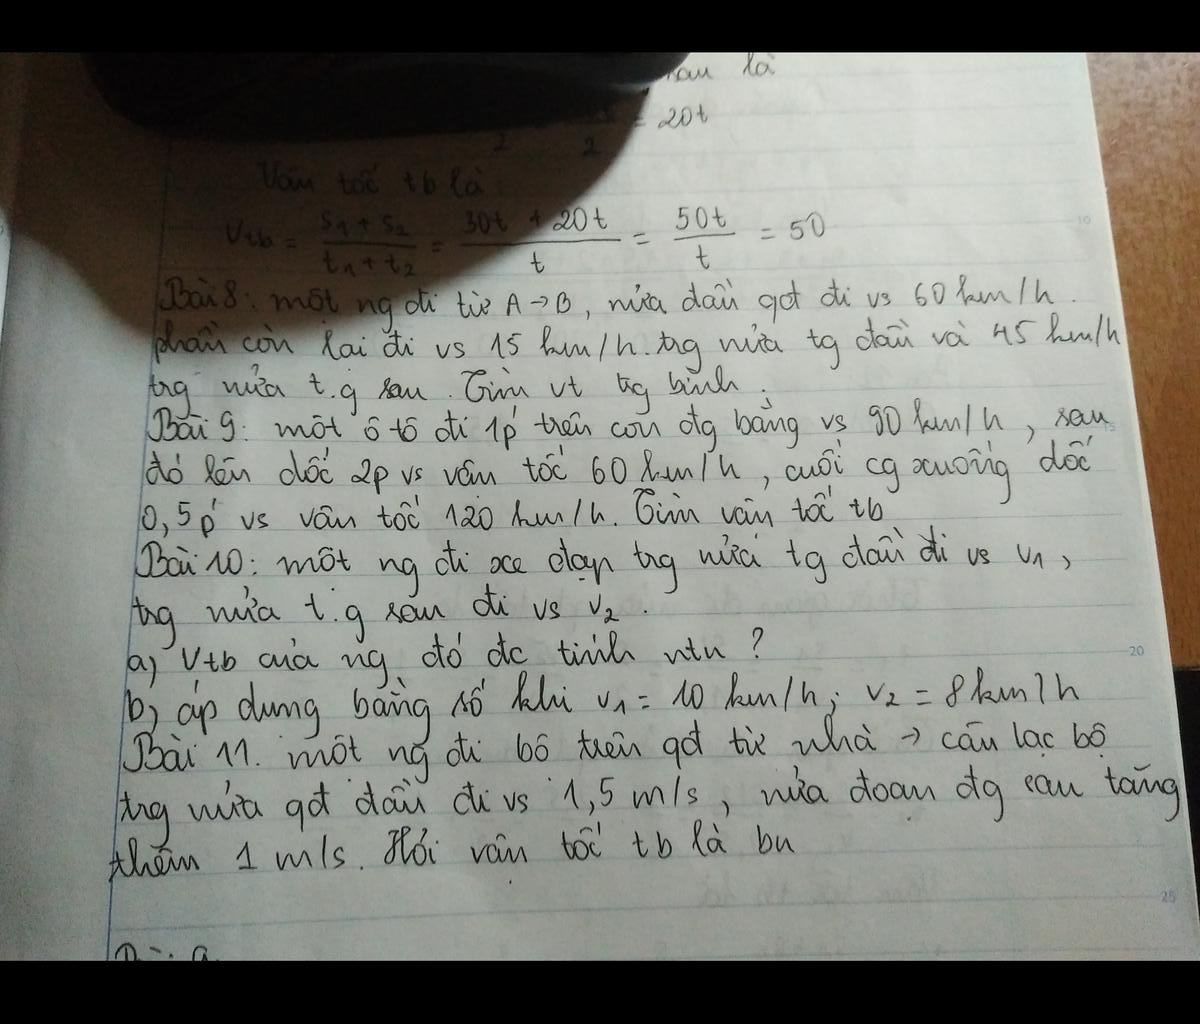 sau là
= 20t
2 2
Vân tốc tb là
Vtb = s1 + s2 / t1 + t2 = 30t + 20t / t = 50t / t = 50
Bài 8: một ng đi từ A → B, nửa đầu qđ đi vs 60 km/h.
phần còn lại đi vs 15 km/h. trg nửa tg đầu và 45 km/h
trg nửa t.g sau. Tìm vt trg bình.
Bài 9: một ô tô đi 1p' trên con đg bằng vs 90 km/h, sau
đó lên dốc 2p vs vân tốc 60 km/h, cuối cg xuống dốc
0,5p' vs vân tốc 120 km/h. Tìm vân tốc tb
Bài 10: một ng đi xe đạp trg nửa tg đầu đi vs v1,
trg nửa t.g sau đi vs v2.
a, Vtb của ng đó đc tính ntn ?
b, áp dung bằng số khi v1 = 10 km/h; v2 = 8 km/h
Bài 11. một ng đi bô trên qđ từ nhà → câu lạc bô
trg nửa qđ đầu đi vs 1,5 m/s, nửa đoan đg sau tăng
thêm 1 m/s. Hỏi vân tốc tb là bn